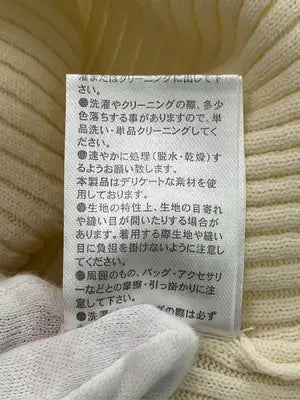 濯またはクリーニングに出して下
さい。
●洗濯やクリーニングの際、多少
色落ちする事がありますので、単
品洗い・単品クリーニングしてく
ださい。
●速やかに処理(脱水・乾燥)す
るようお願い致します。
本製品はデリケートな素材を使
用しております。
●生地の特性上、生地の目寄れ
や縫い目が開いたりする場合が
あります。着用する際生地や縫い
目に負担を掛けないように注意し
てください。
●周囲のもの、バッグ・アクセサリ
ーなどとの摩擦・引っ掛かりに注
意して下さい。
●洗濯
グの際は必ず